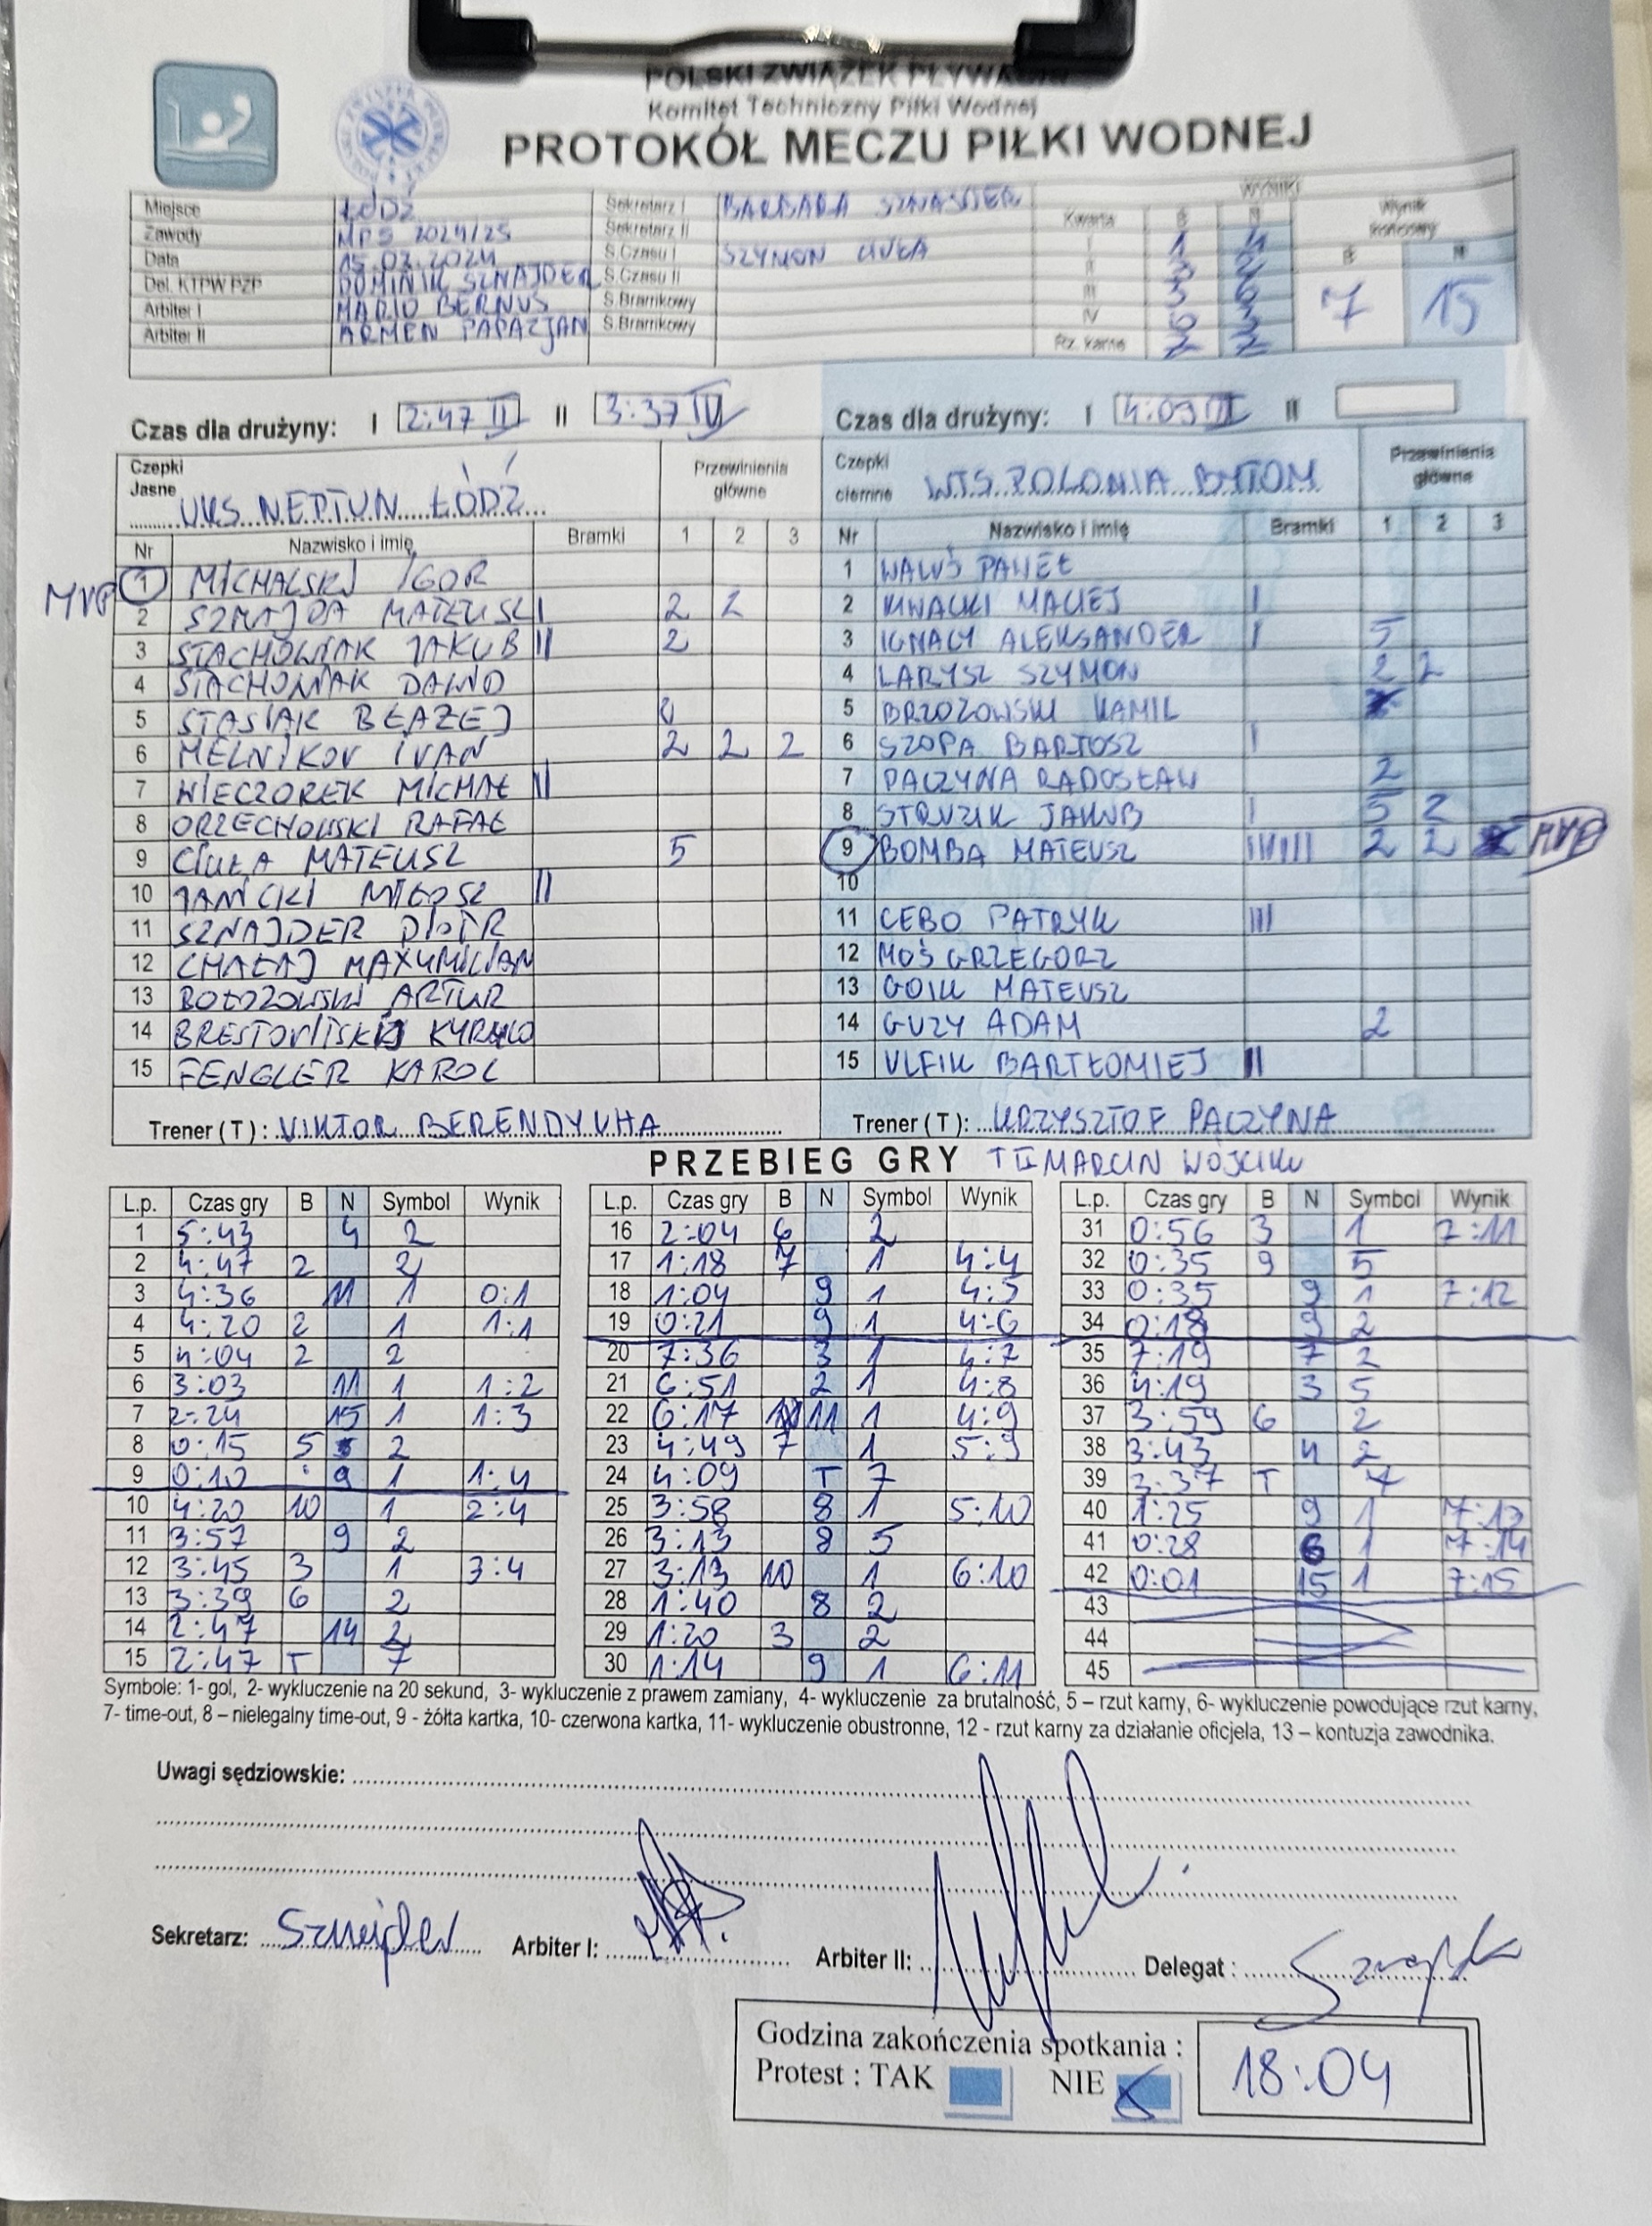 POLSKI ZWIĄZEK PŁYWACKI
Komitet Techniczny Piłki Wodnej
PROTOKÓŁ MECZU PIŁKI WODNEJ
Miejsce ŁÓDŹ Sekretarz I BARBARA SZNAJDER WYNIKI
Zawody MPS 2024/25 Sekretarz II Kwarta B N Wynik końcowy
Data S.Czasu I SZYMON I 1 4 B N
Del. KTPW PZP DOMINIK SZNAJDER S.Czasu II II 3 2 7 15
Arbiter I MARIO BERNUS S.Bramkowy III 3 6
Arbiter II ARMEN PAPAZJAN S.Bramkowy IV 0 3
Rz. karne 2 2
Czas dla drużyny: I 2:47 II II 3:37 IV
Czas dla drużyny: I 4:09 III II
Czepki Jasne UKS NEPTUN ŁÓDŹ Przewinienia główne
Nr Nazwisko i imię Bramki 1 2 3
MVP 1 MICHALSKI IGOR
2 SZNAJDA MATEUSZ I 2 2
3 STACHOWIAK JAKUB II 2
4 STACHOWIAK DAWID
5 STASIAK BŁAŻEJ
6 MELNIKOV IVAN 2 2 2
7 WIECZOREK MICHAŁ II
8 ORZECHOWSKI RAFAŁ
9 CIUŁA MATEUSZ 5
10 JANICKI MIŁOSZ II
11 SZNAJDER PIOTR
12 CHAŁAJ MAXYMILIAN
13 BOŁDZOWSKI ARTUR
14 KYRYLO
15 FENGLER KAROL
Trener ( T ) : VIKTOR BERENDYUHA
Czepki ciemne WTS POLONIA BYTOM Przewinienia główne
Nr Nazwisko i imię Bramki 1 2 3
1 WALUŚ PAWEŁ
2 KWACKI MACIEJ I
3 IGNACY ALEKSANDER I 5
4 LARYSZ SZYMON 2 2
5 BRZOZOWSKI KAMIL
6 SZOPA BARTOSZ I
7 PACZYNA RADOSŁAW 2
8 STRUZIK JAKUB I 5 2
9 BOMBA MATEUSZ IIIIII 2 2 MVP
10
11 CEBO PATRYK III
12 MOŚ GRZEGORZ
13 GOIK MATEUSZ
14 GUZY ADAM 2
15 ULFIK BARTŁOMIEJ II
Trener ( T ): KRZYSZTOF PACZYNA
PRZEBIEG GRY TII MARCIN WOJCIK
L.p. Czas gry B N Symbol Wynik
1 5:43 4 2
2 4:47 2 2
3 4:36 11 1 0:1
4 4:20 2 1 1:1
5 4:04 2 2
6 3:03 11 1 1:2
7 2:24 15 1 1:3
8 0:15 5 2
9 0:10 9 1 1:4
10 4:20 10 1 2:4
11 3:57 9 2
12 3:45 3 1 3:4
13 3:39 6 2
14 2:47 14 2
15 2:47 T 7
L.p. Czas gry B N Symbol Wynik
16 2:04 6 2
17 1:18 7 1 4:4
18 1:04 9 1 4:5
19 0:21 9 1 4:6
20 7:36 3 1 4:7
21 6:51 2 1 4:8
22 6:17 11 1 4:9
23 4:49 7 1 5:9
24 4:09 T 7
25 3:58 8 1 5:10
26 3:13 8 5
27 3:13 10 1 6:10
28 1:40 8 2
29 1:20 3 2
30 1:14 9 1 6:11
L.p. Czas gry B N Symbol Wynik
31 0:56 3 1 7:11
32 0:35 9 5
33 0:35 9 1 7:12
34 0:18 9 2
35 7:19 7 2
36 4:19 3 5
37 3:59 6 2
38 3:43 4 2
39 3:37 T 7
40 1:25 9 1 7:13
41 0:28 6 1 7:14
42 0:01 15 1 7:15
43
44
45
Symbole: 1- gol, 2- wykluczenie na 20 sekund, 3- wykluczenie z prawem zamiany, 4- wykluczenie za brutalność, 5 – rzut karny, 6- wykluczenie powodujące rzut karny,
7- time-out, 8 – nielegalny time-out, 9 - żółta kartka, 10- czerwona kartka, 11- wykluczenie obustronne, 12 - rzut karny za działanie oficjela, 13 – kontuzja zawodnika.
Uwagi sędziowskie:
Sekretarz: Sznajder Arbiter I: Arbiter II: Delegat :
Godzina zakończenia spotkania : 18:04
Protest : TAK NIE